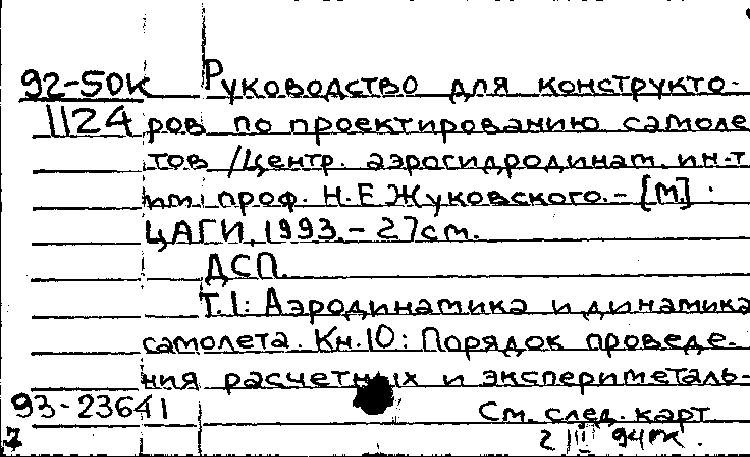 92-50к Руководство для конструкто-
1124 ров по проектированию самоле
тов /Центр. аэрогидродинам. ин-т
им. проф. Н.Е Жуковского. – [М.]:
ЦАГИ, 1993. – 27см.
ДСП.
Т.1: Аэродинамика и динамика
самолета. Кн.10: Порядок проведе-
ния расчетных и экспериметаль-
93-23641 См. след. карт
7 2 III 94